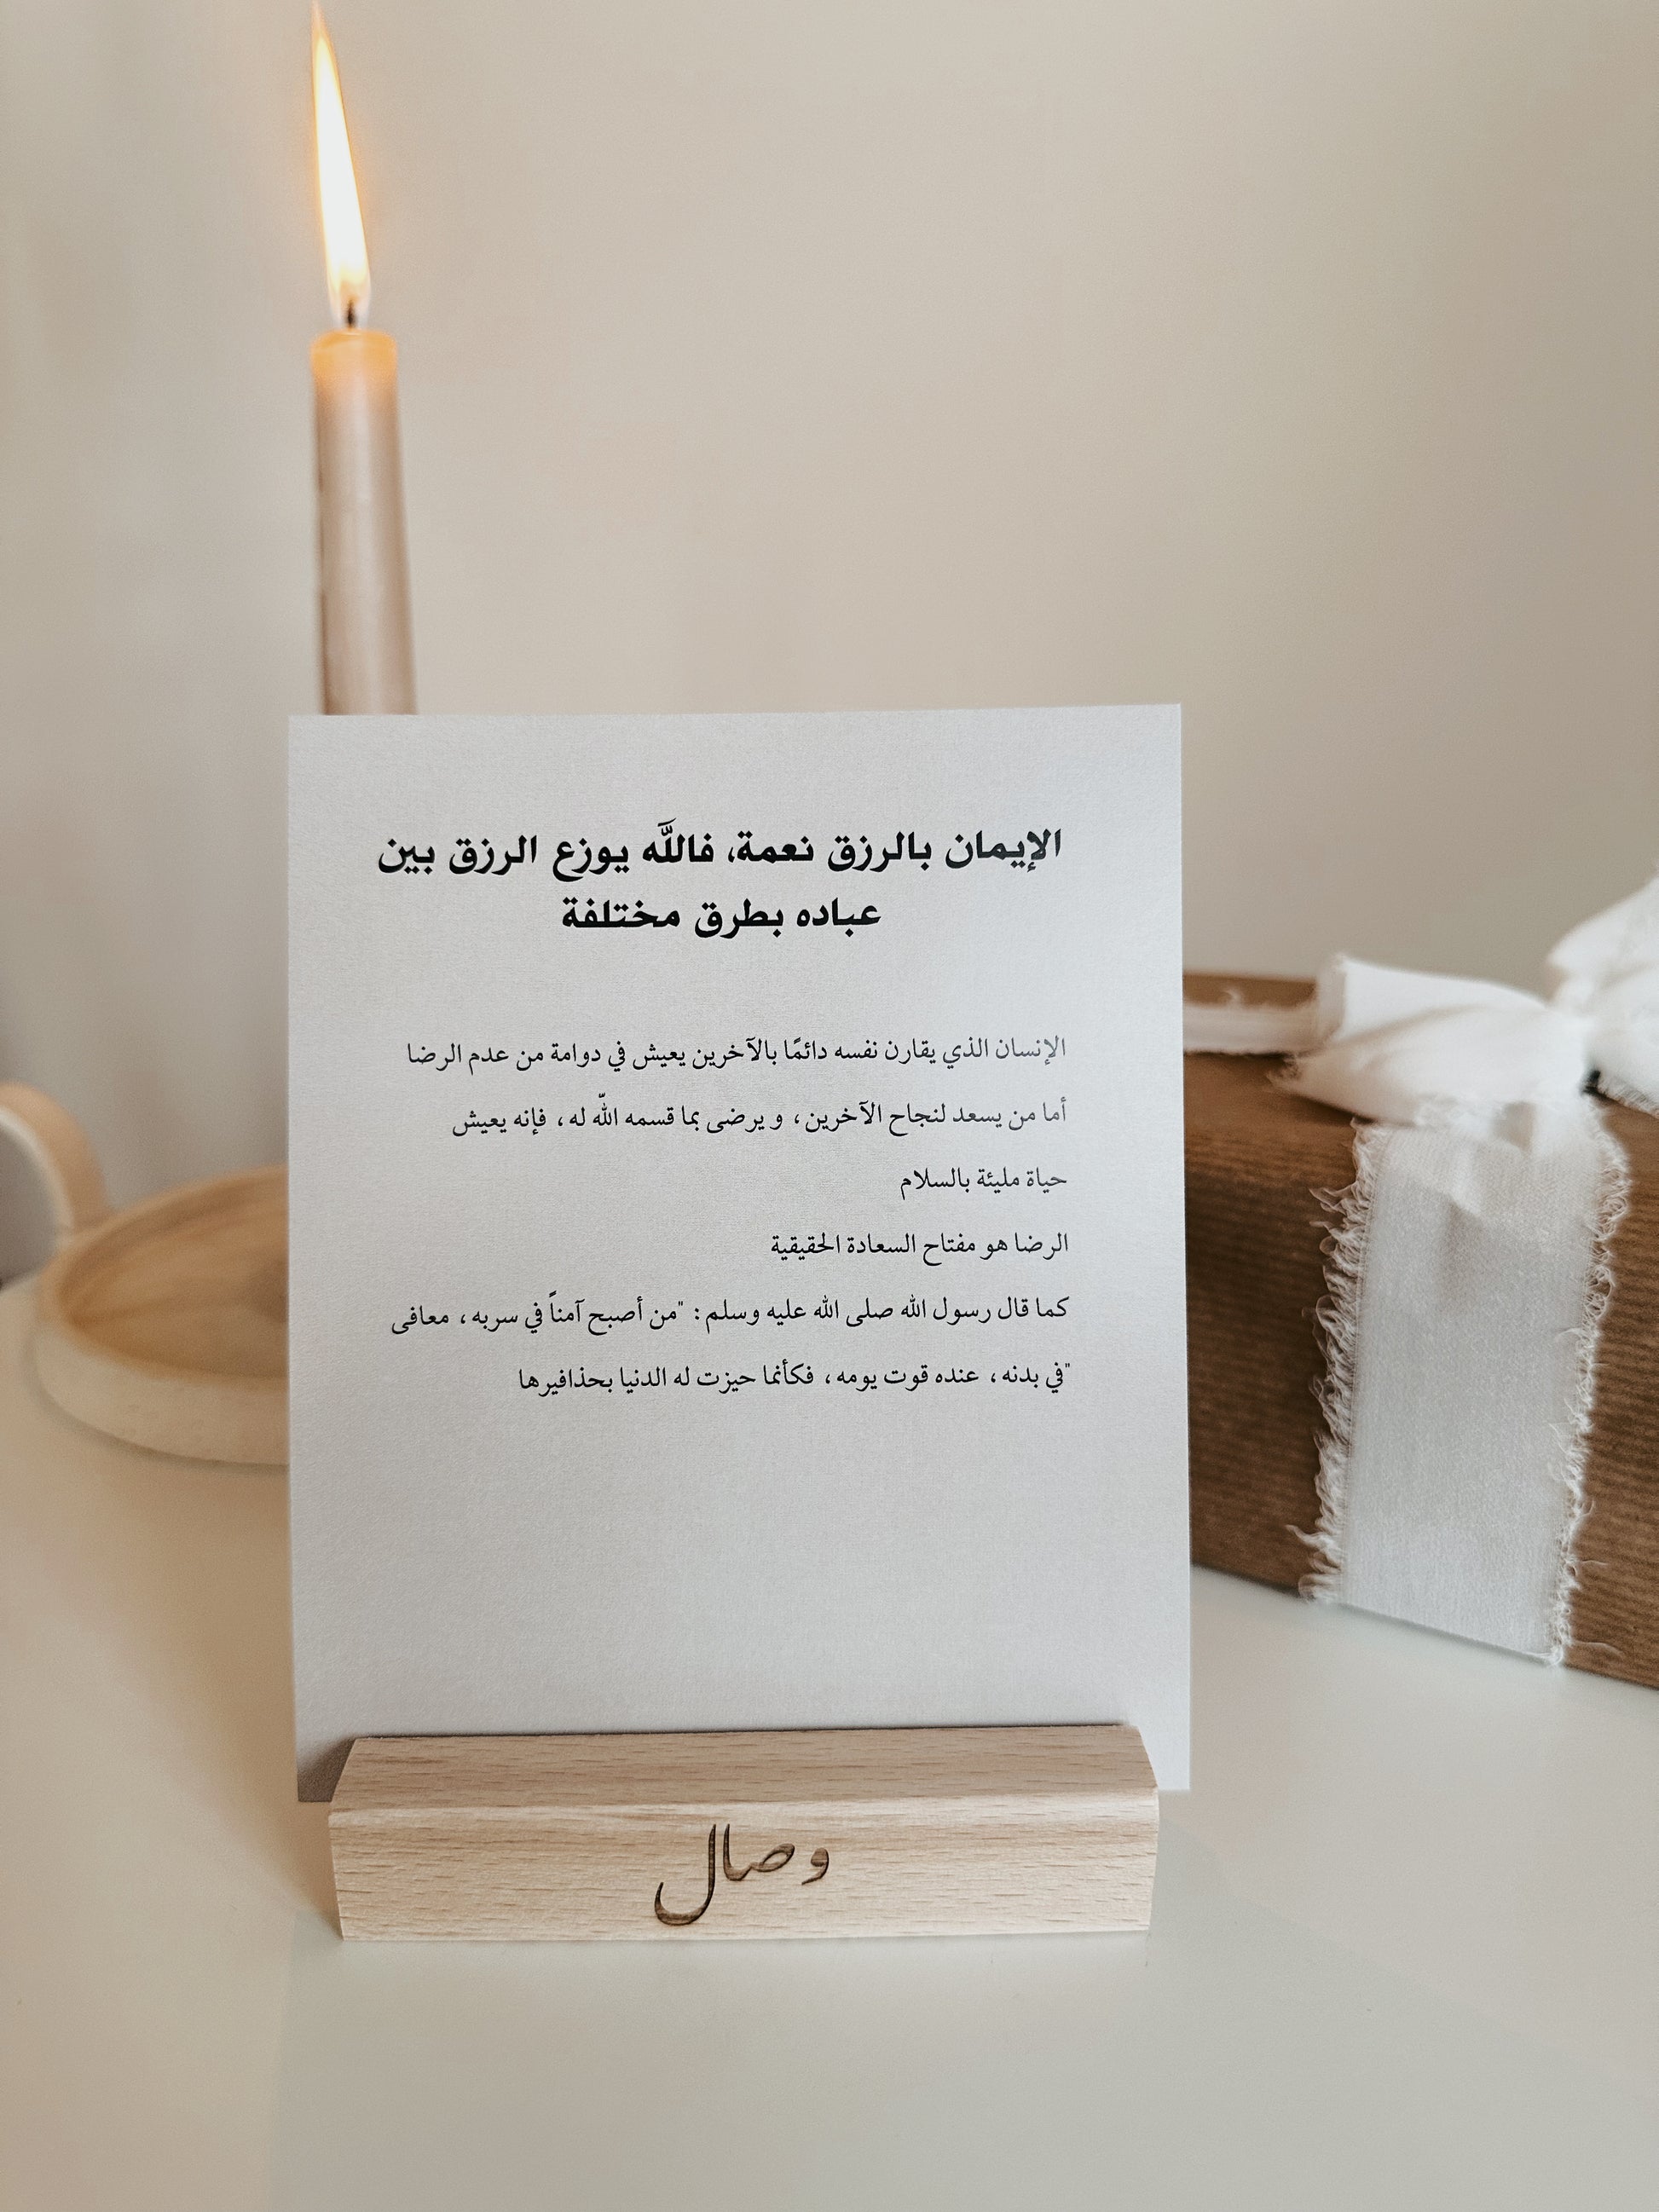 الإيمان بالرزق نعمة، فاللَّه يوزع الرزق بين
عباده بطرق مختلفة
الإنسان الذي يقارن نفسه دائمًا بالآخرين يعيش في دوامة من عدم الرضا
أما من يسعد لنجاح الآخرين، ويرضى بما قسمه اللّه له، فإنه يعيش
حياة مليئة بالسلام
الرضا هو مفتاح السعادة الحقيقية
كما قال رسول الله صلى الله عليه وسلم: "من أصبح آمناً في سربه، معافى
"في بدنه، عنده قوت يومه، فكأنما حيزت له الدنيا بحذافيرها
وصال